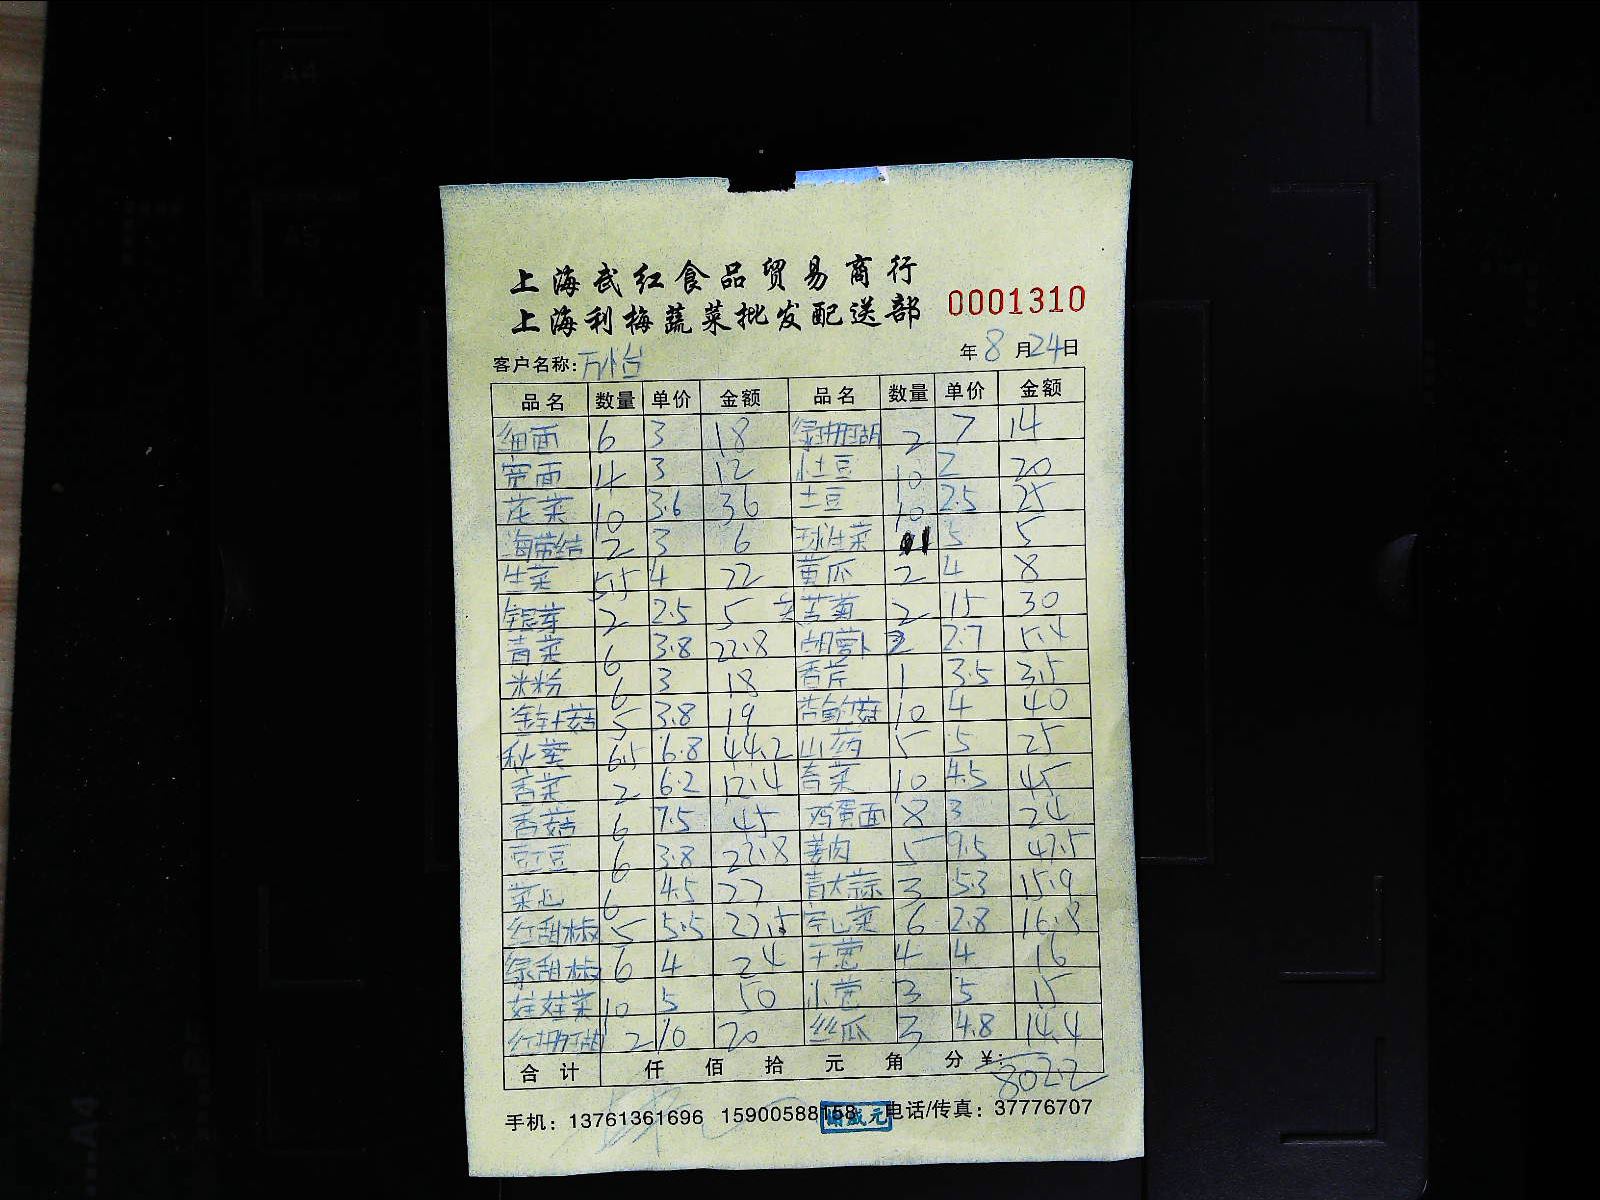 上海武红食品贸易商行
上海利梅蔬菜批发配送部 0001310
客户名称: 万怡 年 8 月 24 日
品名 数量 单价 金额 品名 数量 单价 金额
细面 6 3 18 绿珊瑚 2 7 14
宽面 4 3 12 小土豆 10 2 20
花菜 10 3.6 36 土豆 10 2.5 25
海带结 2 3 6 球生菜 1 5 5
生菜 5.5 4 22 黄瓜 2 4 8
银芽 2 2.5 5 苦菊 2 15 30
青菜 6 3.8 22.8 胡萝卜 2 2.7 5.4
米粉 6 3 18 香芹 1 3.5 3.5
金针菇 5 3.8 19 杏鲍菇 10 4 40
秋葵 6.5 6.8 44.2 山药 5 5 25
香菜 2 6.2 12.4 菜 10 4.5 45
香菇 6 7.5 45 鸡蛋面 8 3 24
豇豆 6 3.8 22.8 姜肉 5 9.5 47.5
菜心 6 4.5 27 青大蒜 3 5.3 15.9
红甜椒 5 5.5 27.5 空心菜 6 2.8 16.8
绿甜椒 6 4 24 干葱 4 4 16
娃娃菜 10 5 50 小葱 3 5 15
红珊瑚 2 10 20 丝瓜 3 4.8 14.4
合计 仟 佰 拾 元 角 分 ¥: 802.2
手机: 13761361696 15900588158 电话/传真: 37776707